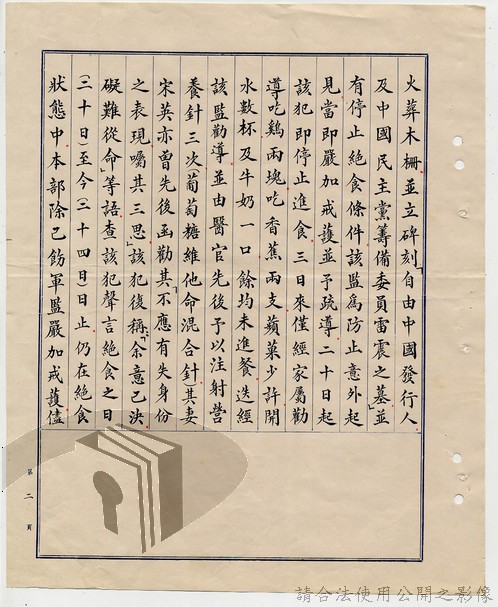 火葬木柵並立碑刻「自由中國發行人
及中國民主黨籌備委員雷震之墓」並
有停止絕食條件該監為防止意外起
見當即嚴加戒護並予疏導二十日起
該犯即停止進食三日來僅經家屬勸
導吃鷄兩塊吃香蕉兩支蘋菓少許開
水數杯及牛奶一口餘均未進餐迭經
該監勸導並由醫官先後予以注射營
養針三次(葡萄糖維他命混合針)其妻
宋英亦曾先後函勸其「不應有失身份
之表現囑其三思」該犯復稱:「余意已決
礙難從命」等語查該犯聲言絕食之日
(二十日)至今(二十四日)日止仍在絕食
狀態中本部除已飭軍監嚴加戒護儘
第二頁
請合法使用公開之影像